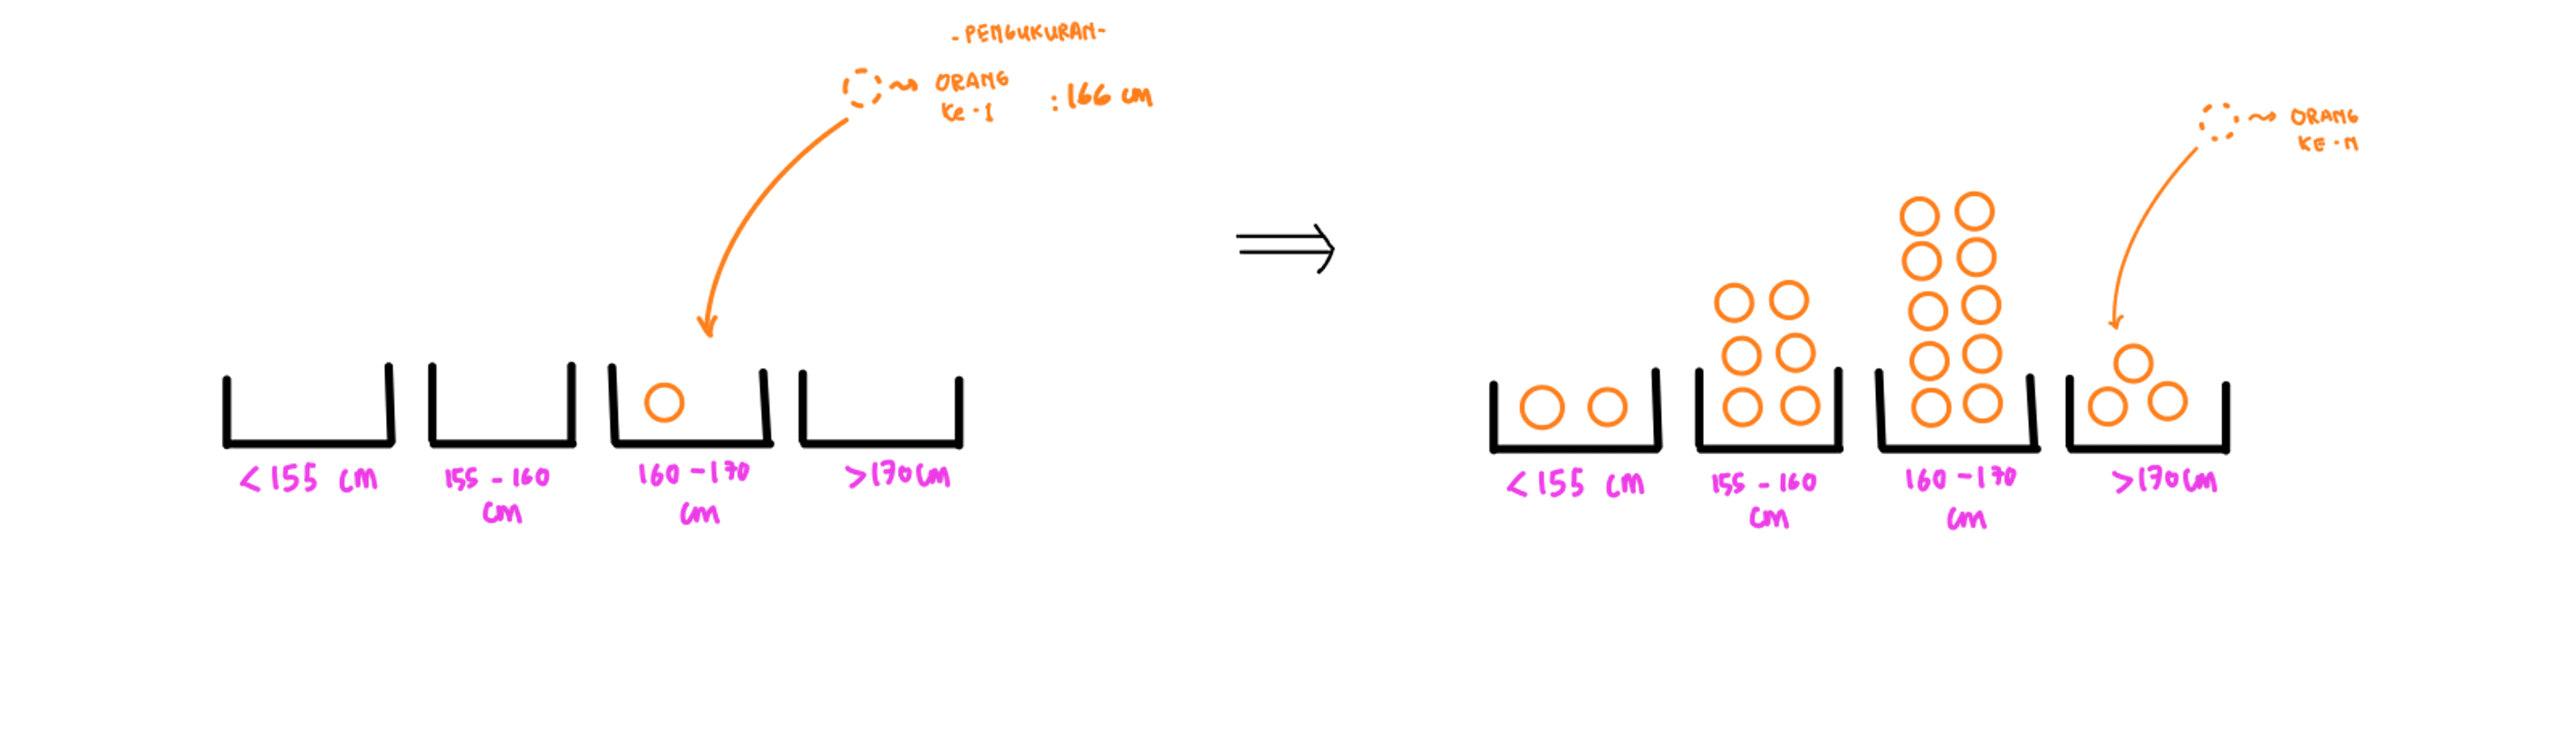 - PENGUKURAN-
ORANG
Ke-1 : 166 cm
<155 cm
155 - 160
cm
160 - 170
cm
>170cm
ORANG
KE-N
<155 cm
155 - 160
cm
160 - 170
cm
>170cm